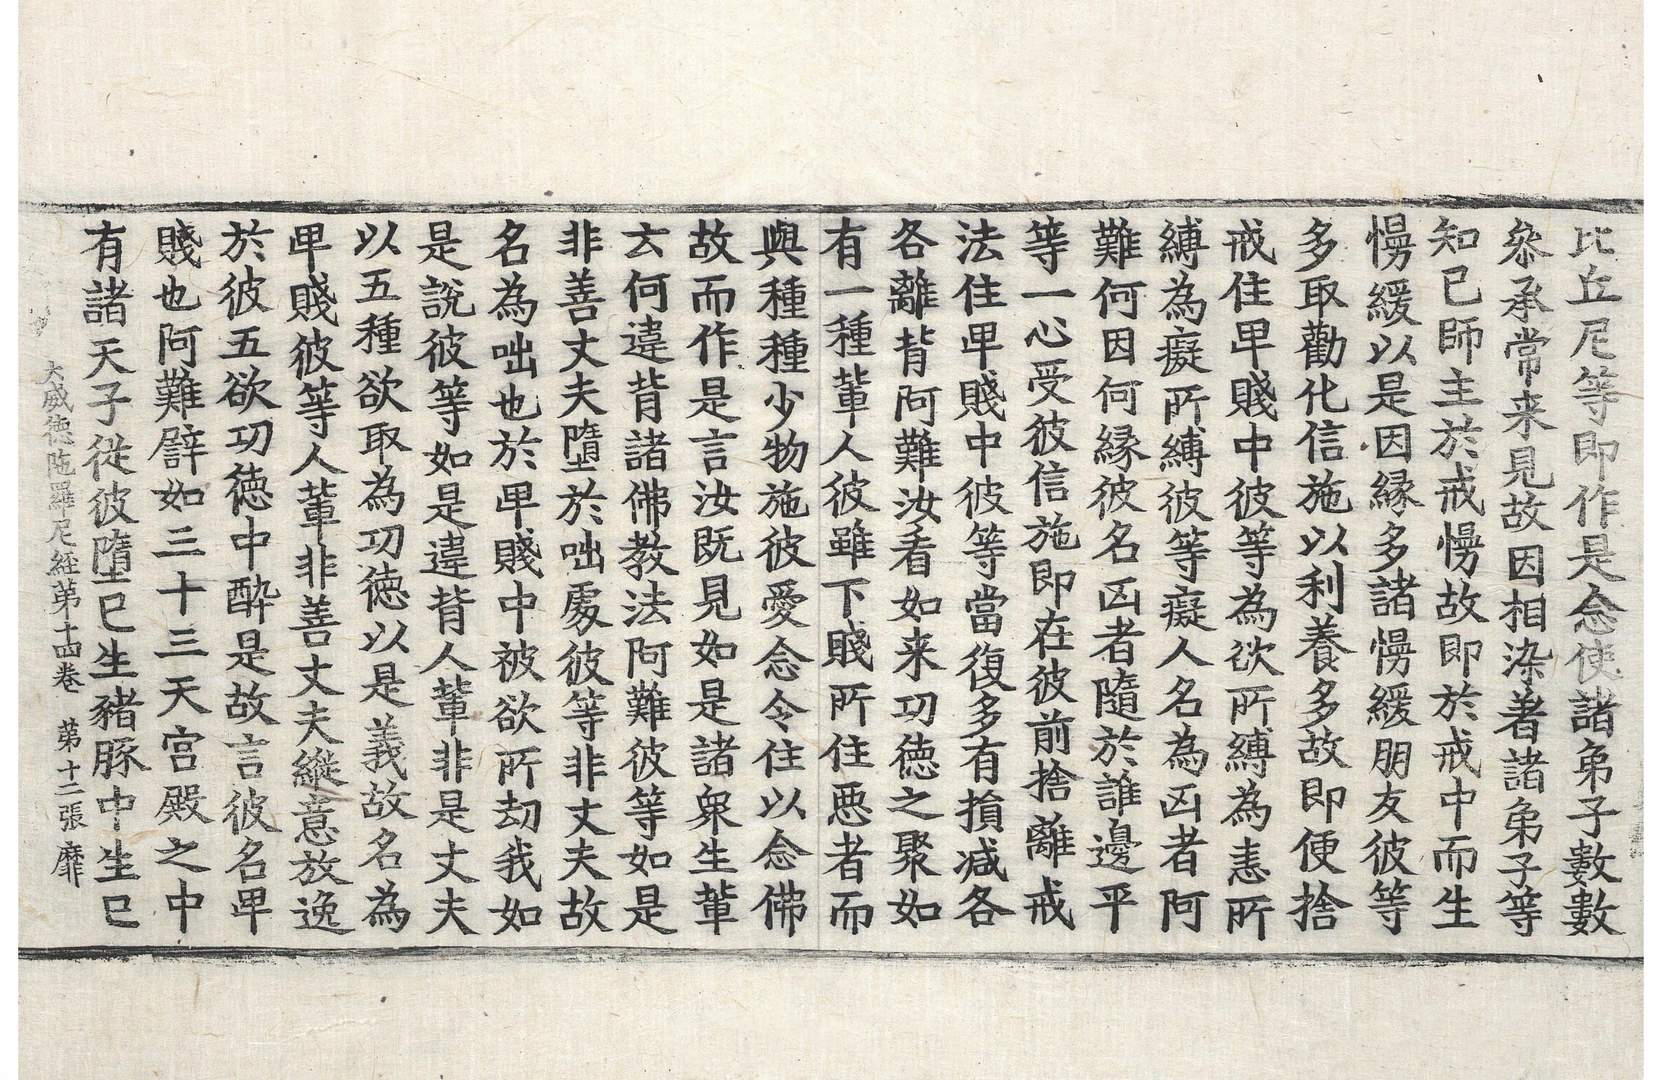 比丘尼等即作是念使諸弟子數數
叅承常来見故因相染著諸弟子等
知已師主於戒慢故即於戒中而生
慢緩以是因緣多諸慢緩朋友彼等
多取勸化信施以利養多故即便捨
戒住甲賤中彼等為欲所縛為恚所
縛為癡所縛彼等癡人名為凶者阿
難何因何緣彼名凶者隨於誰邊平
等一心受彼信施即在彼前捨離戒
法住甲賤中彼等當復多有損减各
各離背阿難汝看如来功德之聚如
有一種輩人彼雖下賤所住惡者而
與種種少物施彼愛念令住以念佛
故而作是言汝既見如是諸衆生輩
云何違背諸佛教法阿難彼等如是
非善丈夫墮於咄處彼等非丈夫故
名為咄也於甲賤中被欲所劫我如
是說彼等如是違背人輩非是丈夫
以五種欲取為功德以是義故名為
甲賤彼等人輩非善丈夫縱意放逸
於彼五欲功德中酔是故言彼名甲
賤也阿難譬如三十三天宫殿之中
有諸天子從彼墮已生豬豚中生已
大威德陁羅尼經第十四卷 第十二張 靡